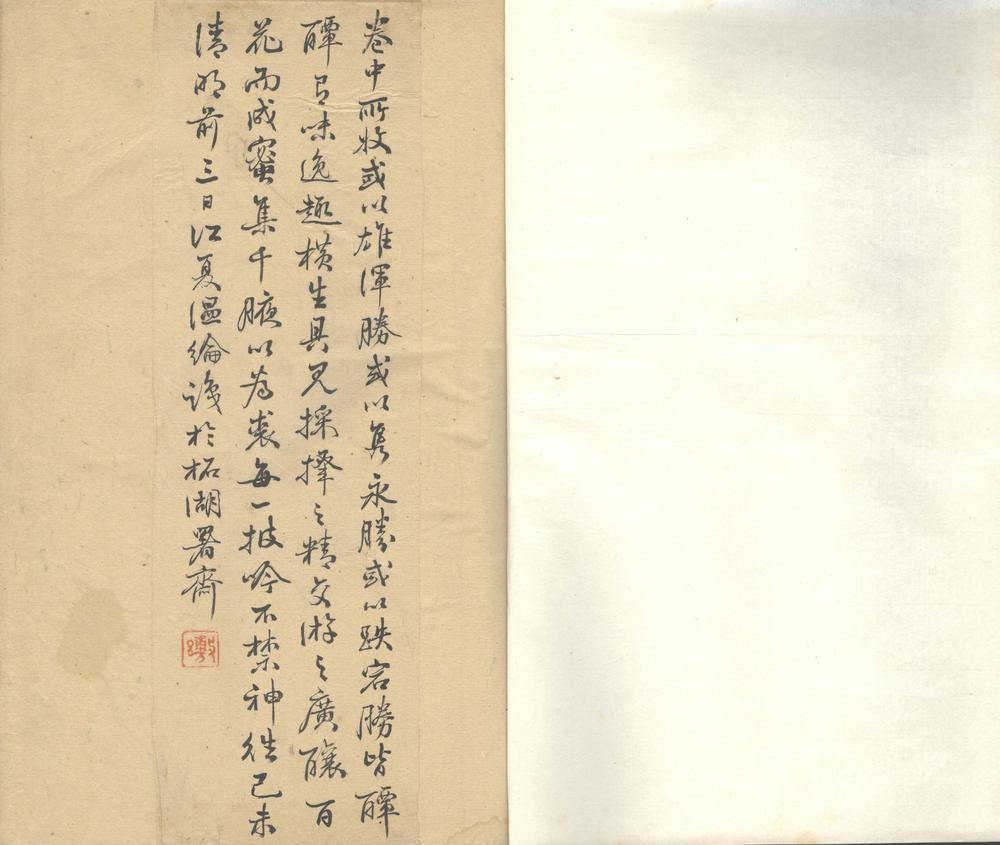 卷中所收或以雄渾勝或以雋永勝或以跌宕勝皆醰
醰有味逸趣橫生具見採擇之精交游之廣釀百
花而成蜜集千腋以為裘每一披吟不禁神往己未
清明前三日江夏溫綸識於柘湖署齋